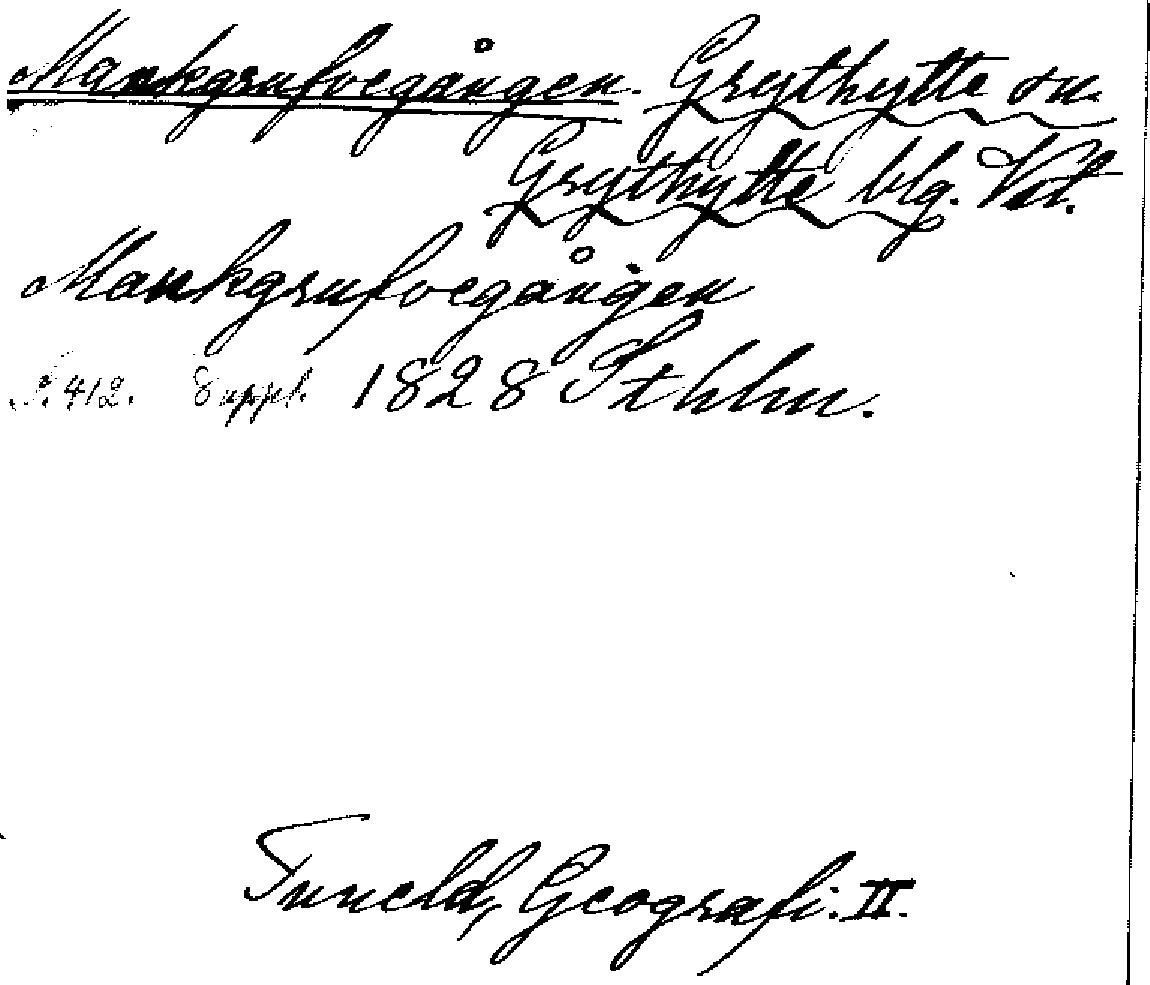 Mankgrufvegången. Grythytte sn.
Grythytte blg. Vstl.
Mankgrufvegången
S. 412. Suppl. 1828 Sthlm.
Tuneld, Geografi. II.